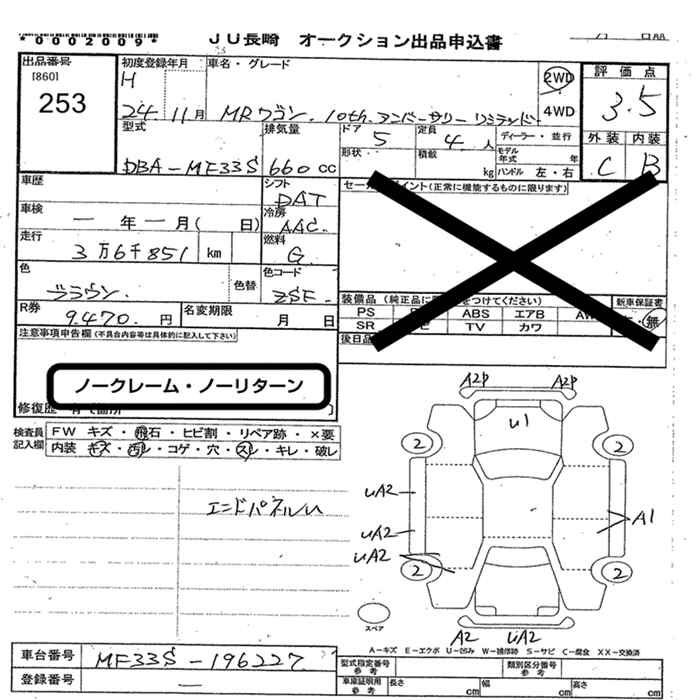 *0002009*
JU長崎 オークション出品申込書
出品番号
[860]
253
初度登録年月
H
24年 11月
車名・グレード
MRワゴン. 10th. アニバーサリー リミテッド
2WD
4WD
評価点
3.5
外装 内装
C B
型式
DBA-MF33S
排気量
660 CC
ドア 5
形状
定員 4 人
積載 kg
ディーラー・並行
モデル年式 年
ハンドル 左・右
車歴
シフト
DAT
車検
一 年 一 月( 日)
冷房
AAC
走行
3万6千851 km
燃料
G
色
ブラウン
色替
色コード
ZSF
R券
9.470. 円
名変期限
月 日
(正常に機能するものに限ります)
装備品
PS ABS エアB
SR TV カワ
新車保証書
無
後日品
注意事項申告欄(不具合内容等は具体的に記入して下さい)
ノークレーム・ノーリターン
修復歴
検査員記入欄
FW キズ・飛石・ヒビ割・リペア跡・×要
内装 キズ・汚レ・コゲ・穴・スレ・キレ・破レ
エンドパネルU
A2P A2P
U1
2 2
UA2
UA2
UA2
A1
2 2
スペア
A2 UA2
A-キズ E-エクボ U-凹み W-補修跡 S-サビ C-腐食 XX-交換済
車台番号
MF33S-196227
登録番号
—
型式指定番号 参考
類別区分番号 参考
車庫証明用 参考
長さ cm 幅 cm 高さ cm